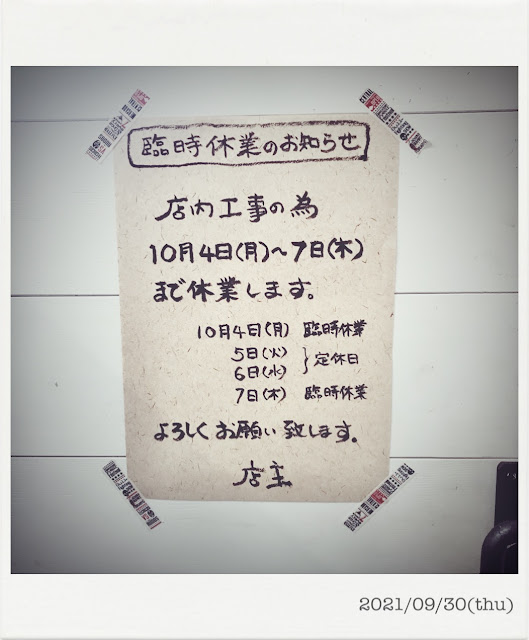 臨時休業のお知らせ
店内工事の為
10月4日(月)～7日(木)
まで休業します。
10月4日(月) 臨時休業
5日(火)
6日(水) }定休日
7日(木) 臨時休業
よろしくお願い致します。
店主
2021/09/30(thu)